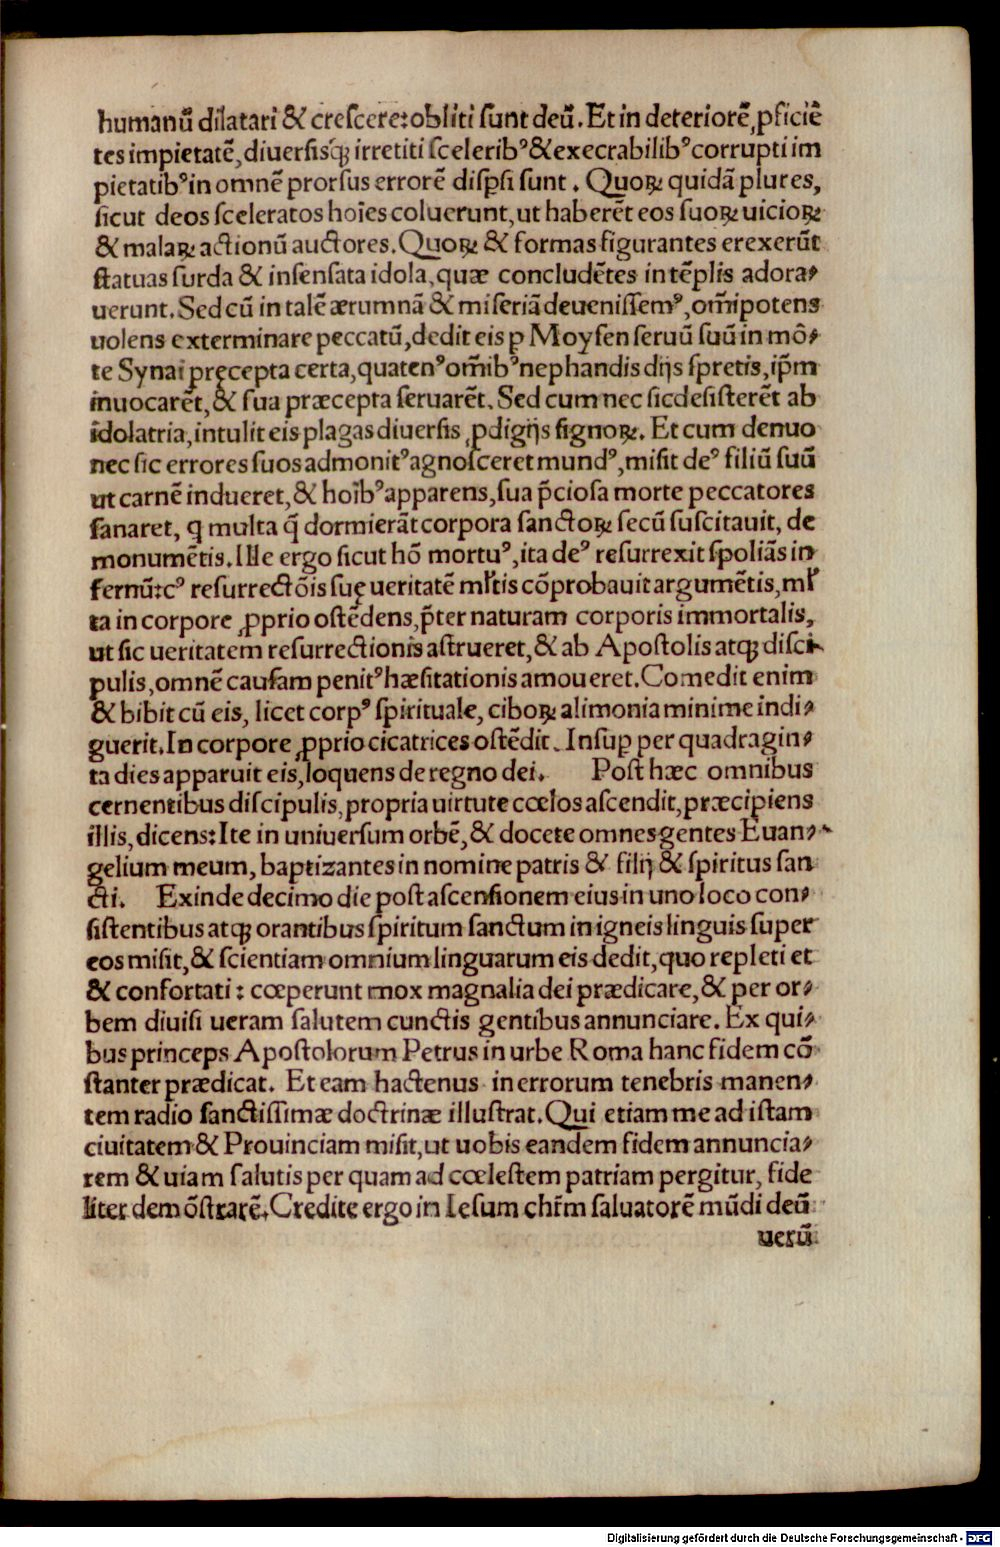 humanũ dilatari & crescere:obliti sunt deũ. Et in deteriorẽ ꝓficiẽ
tes impietatẽ, diuersisq; irretiti sceleribꝰ & execrabilibꝰ corrupti im
pietatibꝰ in omnẽ prorsus errorẽ disꝑsi sunt. Quoꝝ quidã plures,
sicut deos sceleratos hoĩes coluerunt, ut haberẽt eos suoꝝ uicioꝝ
& malaꝝ actionũ auctores. Quoꝝ & formas figurantes erexerũt
statuas surda & insensata idola, quæ concludẽtes in tẽplis adora⸗
uerunt. Sed cũ in talẽ ærumnã & miseriã deuenissemꝰ, om̃ipotens
uolens exterminare peccatũ, dedit eis ꝑ Moysen seruũ suũ in mõ⸗
te Synai pręcepta certa, quatenꝰ om̃ibꝰ nephandis dijs spretis, ip̃m
inuocarẽt, & sua præcepta seruarẽt. Sed cum nec sic desisterẽt ab
idolatria, intulit eis plagas diuersis ꝓdigijs signoꝝ. Et cum denuo
nec sic errores suos admonitꝰ agnosceret mundꝰ, misit deꝰ filiũ suũ
ut carnẽ indueret, & hoĩbꝰ apparens, sua p̃ciosa morte peccatores
sanaret, q multa q̃ dormierãt corpora sanctoꝝ secũ suscitauit, de
monumẽtis. Ille ergo sicut hõ mortuꝰ, ita deꝰ resurrexit spoliãs in
fernũ:cꝰ resurrectõis suę ueritatẽ ml̃tis cõprobauit argumẽtis, ml̃
ta in corpore ꝓprio ostẽdens, p̃ter naturam corporis immortalis,
ut sic ueritatem resurrectionis astrueret, & ab Apostolis atq; disci⸗
pulis, omnẽ causam penitꝰ hæsitationis amoueret. Comedit enim
& bibit cũ eis, licet corpꝰ spirituale, ciboꝝ alimonia minime indi⸗
guerit. In corpore ꝓprio cicatrices ostẽdit. Insuꝑ per quadragin⸗
ta dies apparuit eis, loquens de regno dei. Post hæc omnibus
cernentibus discipulis, propria uirtute cœlos ascendit, præcipiens
illis, dicens: Ite in uniuersum orbẽ, & docete omnes gentes Euan⸗
gelium meum, baptizantes in nomine patris & filij & spiritus san
cti. Exinde decimo die post ascensionem eius in uno loco con⸗
sistentibus atq; orantibus spiritum sanctum in igneis linguis super
eos misit, & scientiam omnium linguarum eis dedit, quo repleti et
& confortati : cœperunt mox magnalia dei prædicare, & per or⸗
bem diuisi ueram salutem cunctis gentibus annunciare. Ex qui⸗
bus princeps Apostolorum Petrus in urbe Roma hanc fidem cõ
stanter prædicat. Et eam hactenus in errorum tenebris manen⸗
tem radio sanctissimæ doctrinæ illustrat. Qui etiam me ad istam
ciuitatem & Prouinciam misit, ut uobis eandem fidem annuncia⸗
rem & uiam salutis per quam ad cœlestem patriam pergitur, fide
liter demõstrarẽ. Credite ergo in Iesum chr̃m saluatorẽ mũdi deũ
uerũ
Digitalisierung gefördert durch die Deutsche Forschungsgemeinschaft - DFG